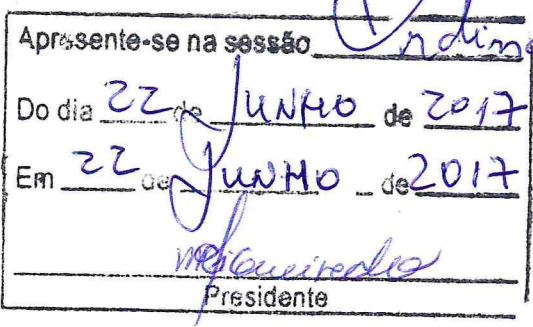 Apresente-se na sessão Ordina
Do dia 22 de JUNHO de 2017
Em 22 de JUNHO de 2017
Presidente